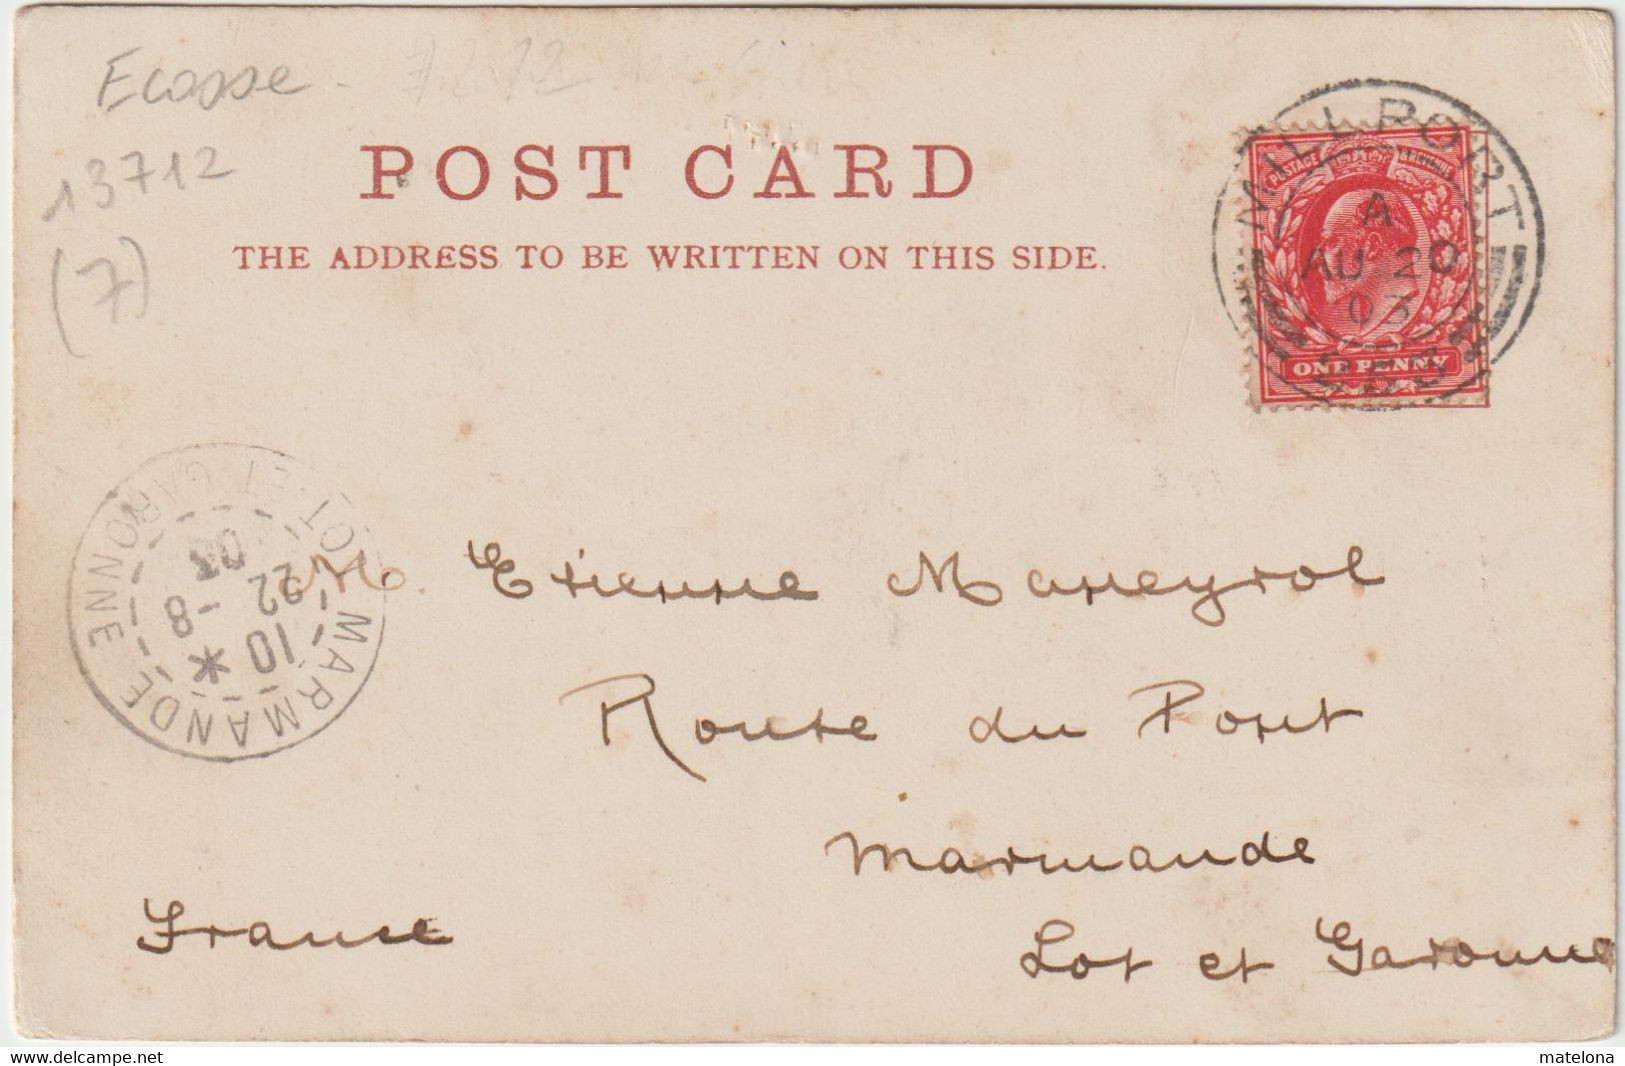 Ecosse - 7212
13712
(7)
POST CARD
THE ADDRESS TO BE WRITTEN ON THIS SIDE.
MILLPORT
A
AU 20
03
POSTAGE & REVENUE
ONE PENNY
MARMANDE
LOT-ET-GARONNE
10 *
22 -8
03
M. Etienne Maneyrol
Route du Pont
Marmande
Lot et Garonne
France
delcampe.net
matelona